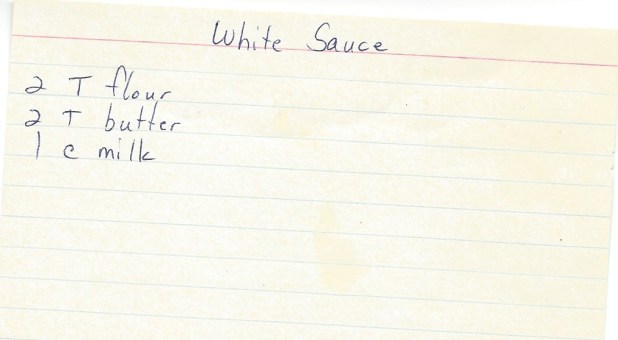 White Sauce
2 T flour
2 T butter
1 c milk